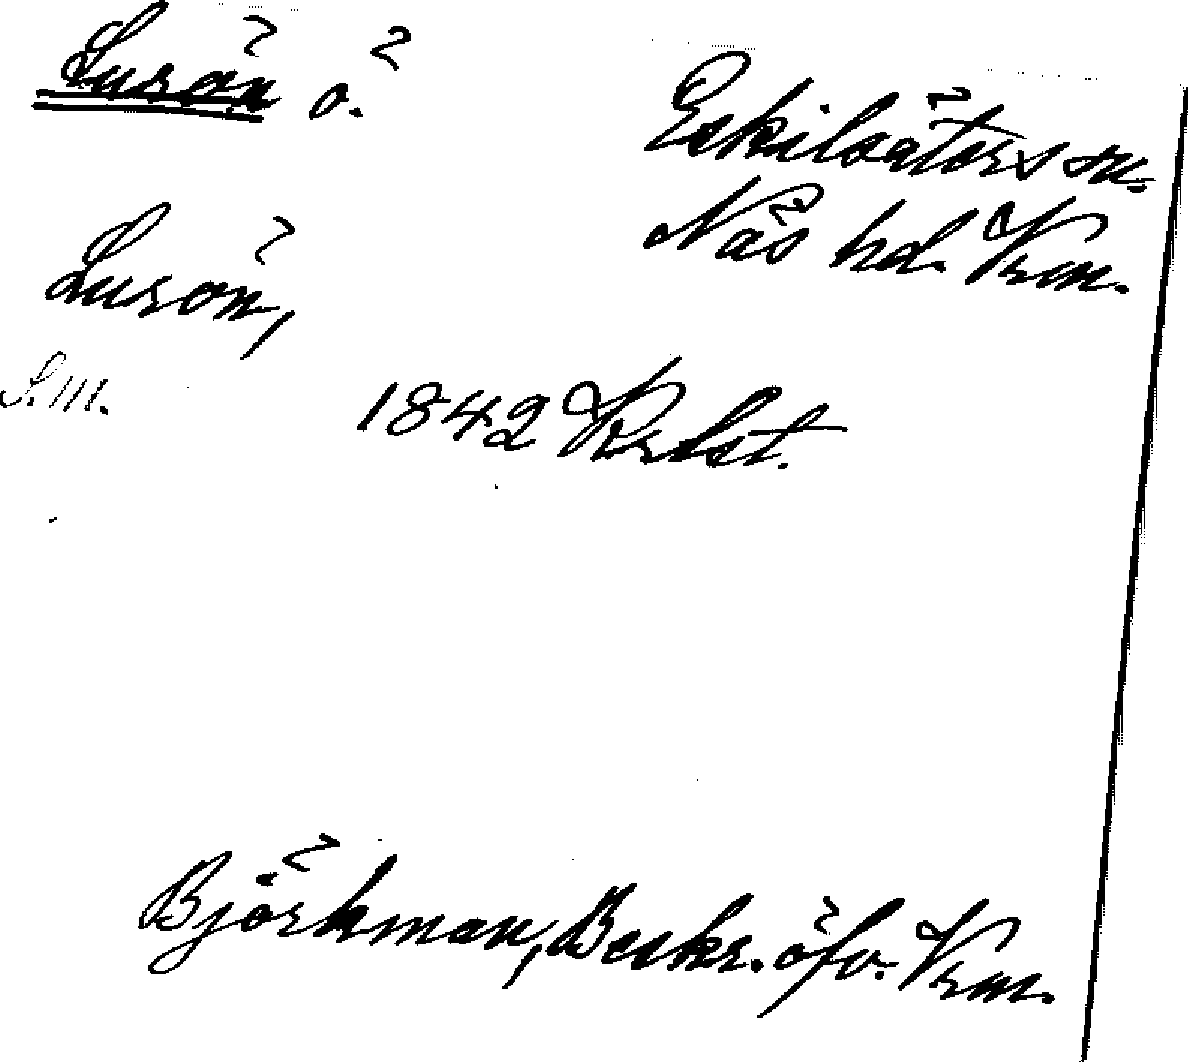 Lurön ö.
Eskilsäters sn.
Näs hd. Vrm.
Lurön,
S.m.
1842
Björkman, Beskr. öfv. Vrm.